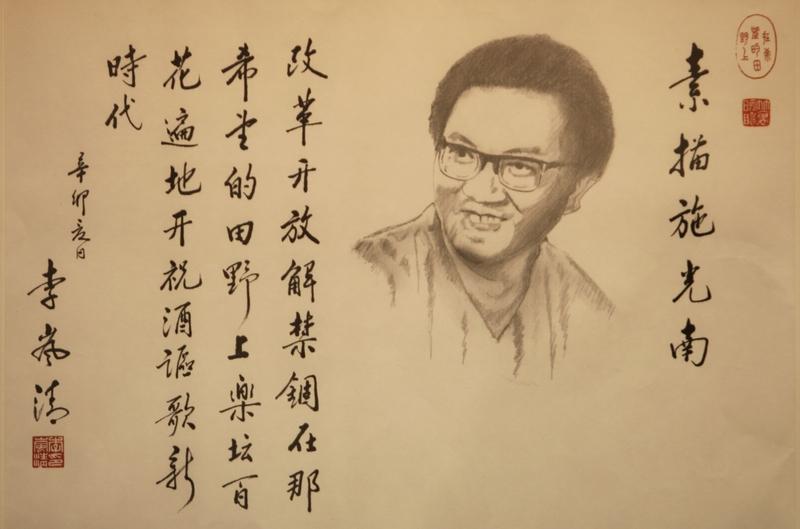 在希望的田野上
素描施光南
改革开放解禁錮在那
希望的田野上樂坛百
花遍地开祝酒謳歌新
時代
辛卯夏日
李岚清